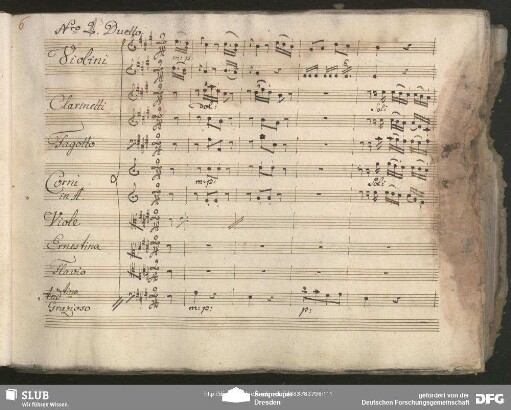 6
Nro 2. Duetto
Violini
m:p:
Clarinetti
dol:
Sol:
Fagotto
Corni
in A
m:p:
Sol:
Viole
Ernestina
Flavio
Grazioso
m:p:
p:
SLUB
Wir führen Wissen.
http://
Dresden
gefördert von der
Deutschen Forschungsgemeinschaft
DFG